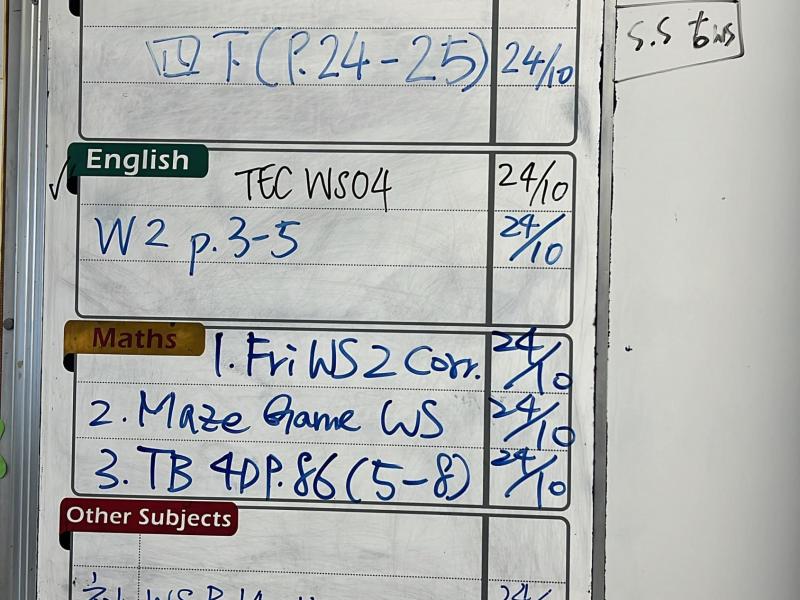 四下(P.24-25) 24/10
S.S
English
TEC WS04 24/10
W2 p.3-5 24/10
Maths
1. Fri WS 2 Corr. 24/10
2. Maze Game WS 24/10
3. TB 4D P.86 (5-8) 24/10
Other Subjects
WS